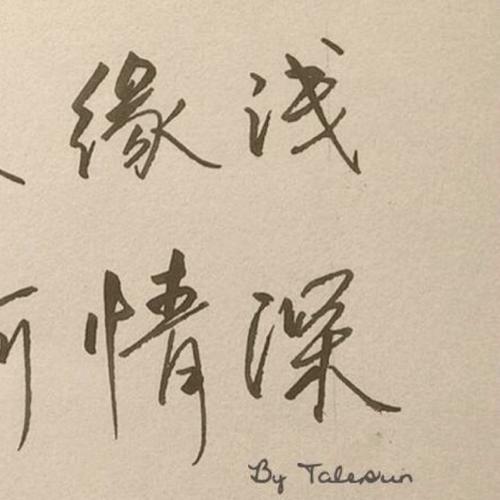 缘浅
情深
By Talesun